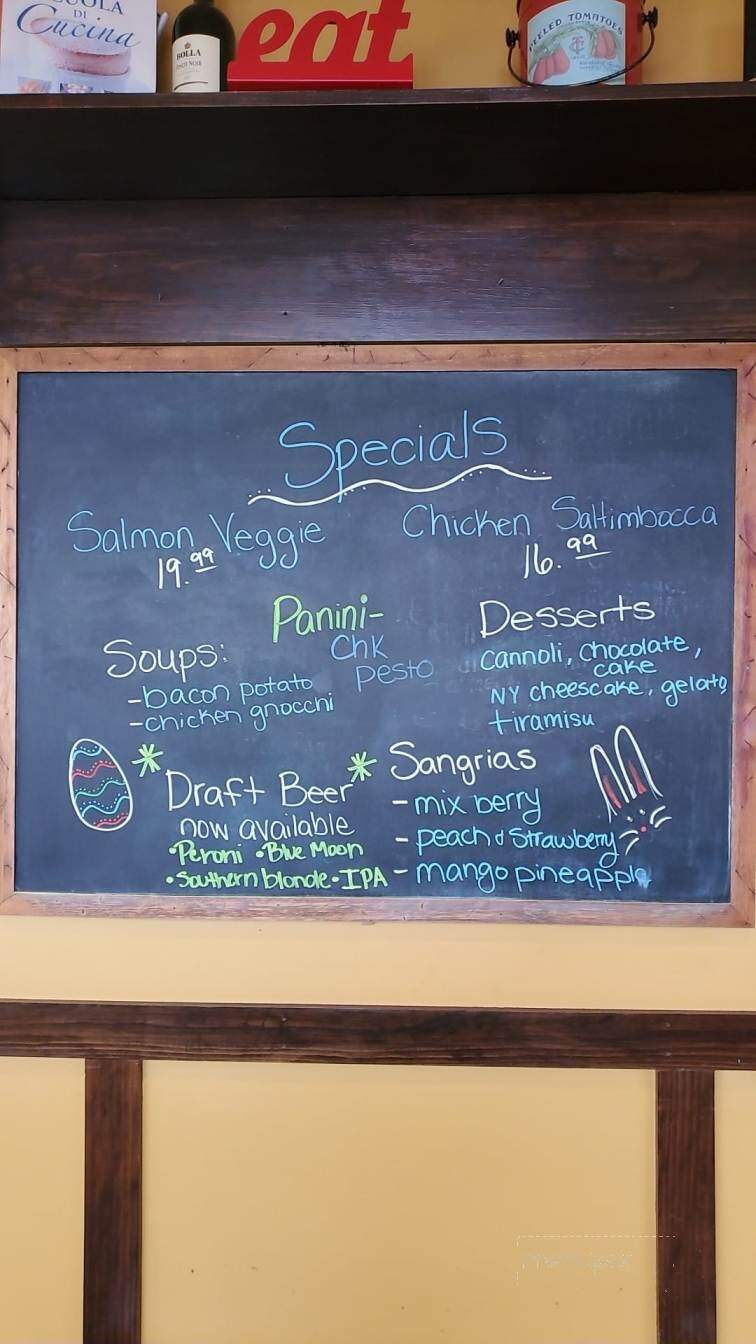 SCUOLA
DI
Cucina
BOLLA
PINOT NOIR
eat
PEELED TOMATOES
Specials
Salmon Veggie
19.99
Chicken Saltimbocca
16.99
Panini-
Chk
pesto
Soups:
-bacon potato
-chicken gnocchi
Desserts
Cannoli, chocolate,
cake
NY cheescake, gelato,
tiramisu
* Draft Beer *
now available
•Peroni •Blue Moon
•Southern blonde •IPA
Sangrias
- mix berry
- peach & Strawberry
- mango pineapple